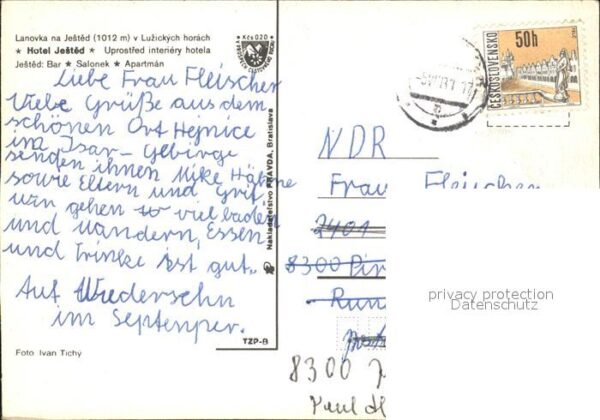 Lanovka na Ještěd (1012 m) v Lužických horách
★ Hotel Ještěd ★ Uprostřed interiéry hotela
Ještěd: Bar ★ Salonek ★ Apartmán
Kčs 0,20
ČESKOSLOVENSKO
50h
Liebe Frau Fleischer
Viele Grüße aus dem
schönen Ort Hejnice
im Isar-Gebirge
senden ihnen Mike
sowie Eltern und
wir gehen viel baden
und wandern, Essen
und Trinke ist gut.
Auf Wiedersehn
im Septemper.
Nakladateľstvo PRAVDA, Bratislava
TZP-B
Foto Ivan Tichý
NDR
Frau Fleischer
7401
8300 Pir
Run
8300
Paul
privacy protection
Datenschutz